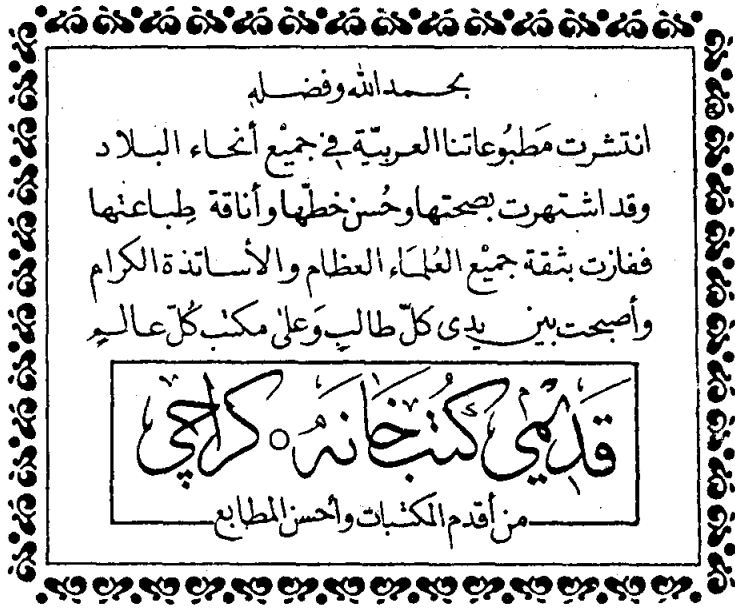 بحمد الله وفضله
انتشرت مَطبُوعاتنا العربيّة في جميْع أنحاء البلاد
وقد اشتهرت بصحتها وحُسن خطّها وأناقة طِباعتها
ففازت بثقة جميْع العُلمَاء العظام والأساتذة الكرام
وأصبحت بين يدى كلّ طالبٍ وَعلى مكتب كُلّ عالمٍ
قديمى كتب خانه ٥ كراچى
من أقدم المكتبات وأحسن المطابع